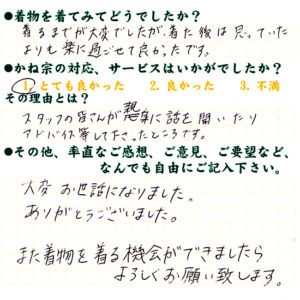 ●着物を着てみてどうでしたか？
着るまでが大変でしたが、着た後は思っていた
よりも楽に過ごせて良かったです。
●かね宗の対応、サービスはいかがでしたか？
1. とても良かった 2. 良かった 3. 不満
その理由とは？
スタッフの皆さんが懇楽に話を聞いたり
アドバイス等して下さったところです。
●その他、率直なご感想、ご意見、ご要望など、
なんでも自由にご記入下さい。
大変お世話になりました。
ありがとうございました。
また着物を着る機会ができましたら
よろしくお願い致します。